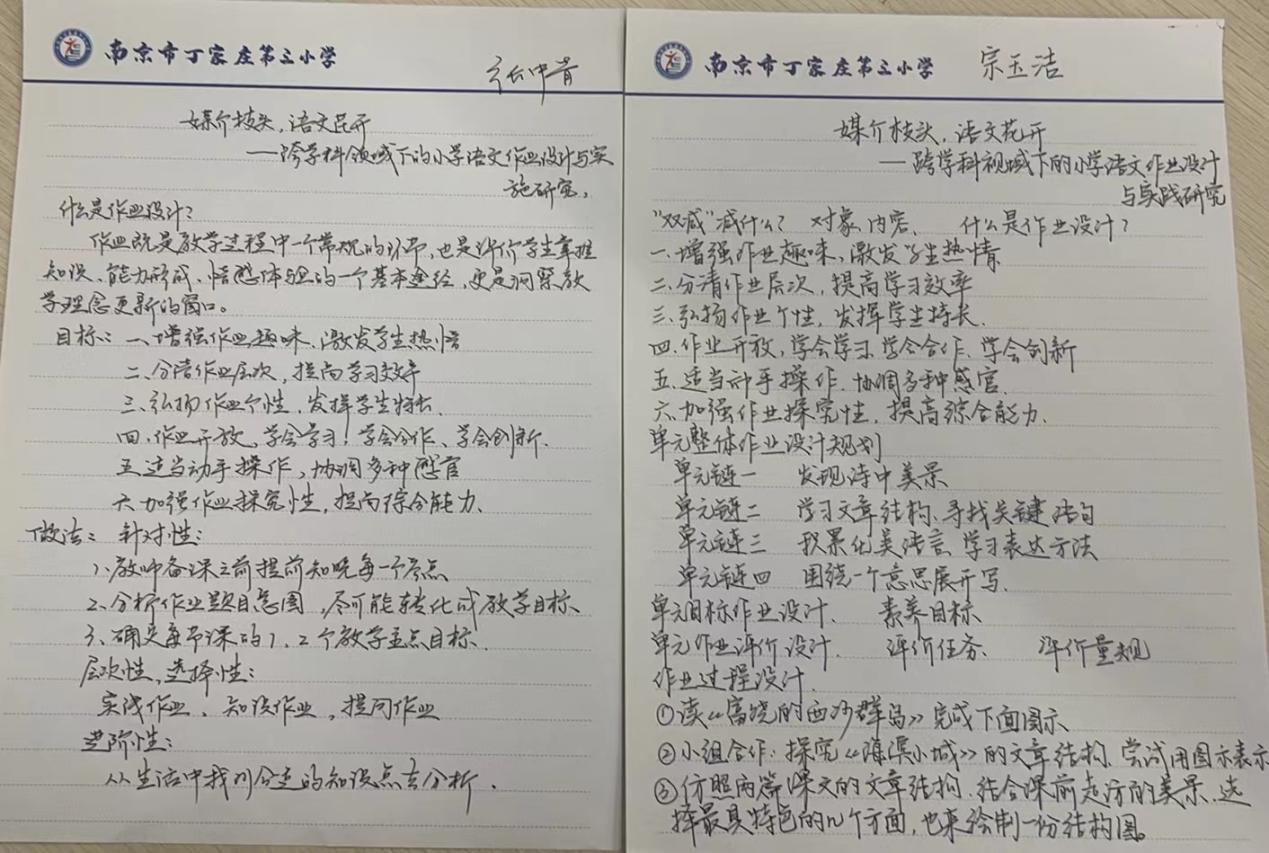 南京市丁家庄第三小学
媒介枝头，语文花开
——跨学科领域下的小学语文作业设计与实
施研究。
什么是作业设计？
作业既是教学过程中一个常规的环节，也是评价学生掌握
知识、能力形成、情感体验的一个基本途径，更是洞察教
学理念更新的窗口。
目标：一、增强作业趣味、激发学生热情
二、分清作业层次，提高学习效率
三、弘扬作业个性、发挥学生特长.
四、作业开放，学会学习！学会合作、学会创新.
五、适当动手操作，协调多种感官
六、加强作业探究性，提高综合能力.
做法：针对性：
1、教师备课之前提前知晓每一个考点
2、分析作业题目意图，尽可能转化成教学目标、
3、确定每节课的1、2个教学重点目标.
层次性，选择性：
实践作业、知识作业，提问作业
进阶性：
从生活中找到的知识点去分析.
南京市丁家庄第三小学 宗玉洁
媒介枝头，语文花开
——跨学科视域下的小学语文作业设计
与实践研究
“双减”减什么？ 对象、内容、 什么是作业设计？
一、增强作业趣味，激发学生热情
二、分清作业层次，提高学习效率
三、弘扬作业个性，发挥学生特长.
四、作业开放，学会学习、学会合作、学会创新
五、适当动手操作、协调多种感官
六、加强作业探究性，提高综合能力.
单元整体作业设计规划
单元链一 发现诗中美景
单元链二 学习文章结构、寻找关键语句
单元链三 积累优美语言、学习表达方法
单元链四 围绕一个意思展开写.
单元目标作业设计. 素养目标
单元作业评价设计. 评价任务、 评价量规
作业过程设计.
①读《富饶的西沙群岛》完成下面图示
②小组合作：探究《海滨小城》的文章结构、尝试用图示表示
③仿照两篇课文的文章结构，结合课前走访的美景、选
择最具特色的几个方面，也来绘制一份结构图。